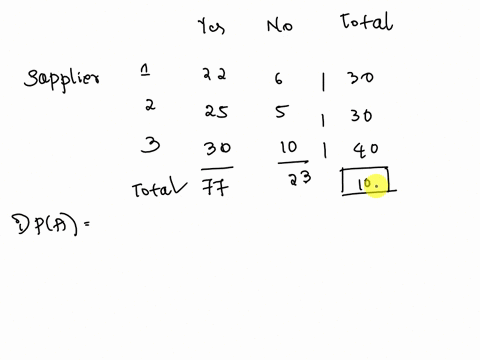 Yes No Total
Supplier 1 22 6 | 30
2 25 5 | 30
3 30 10 | 40
Total 77 23 10.
1) P(A) =